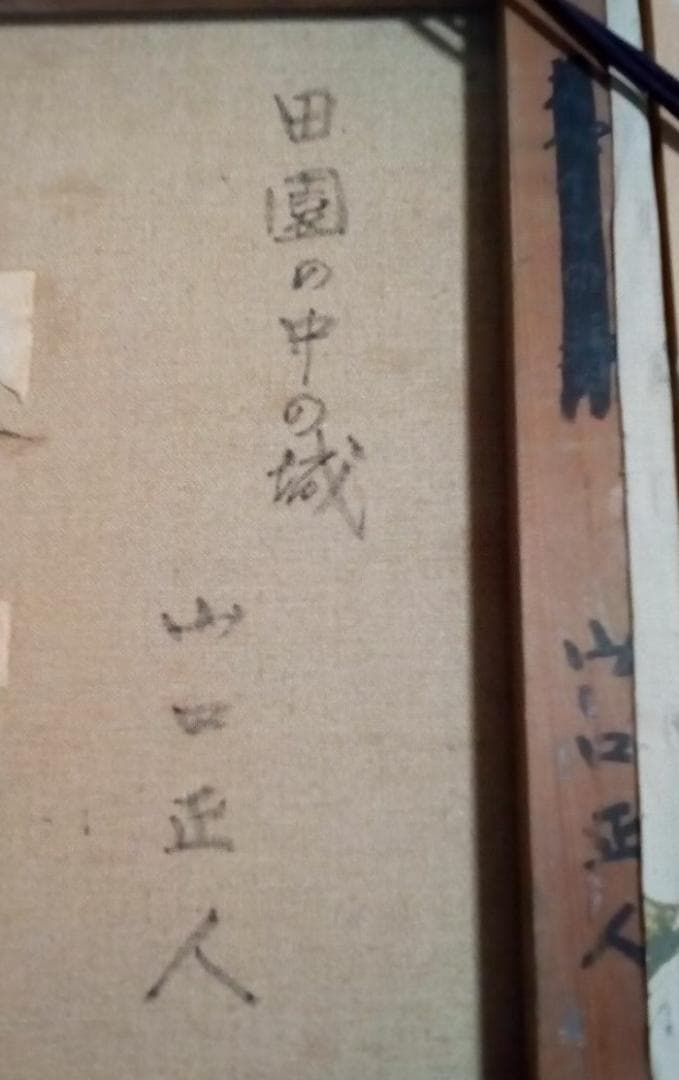 田園の中の城
山口正人
山口正人